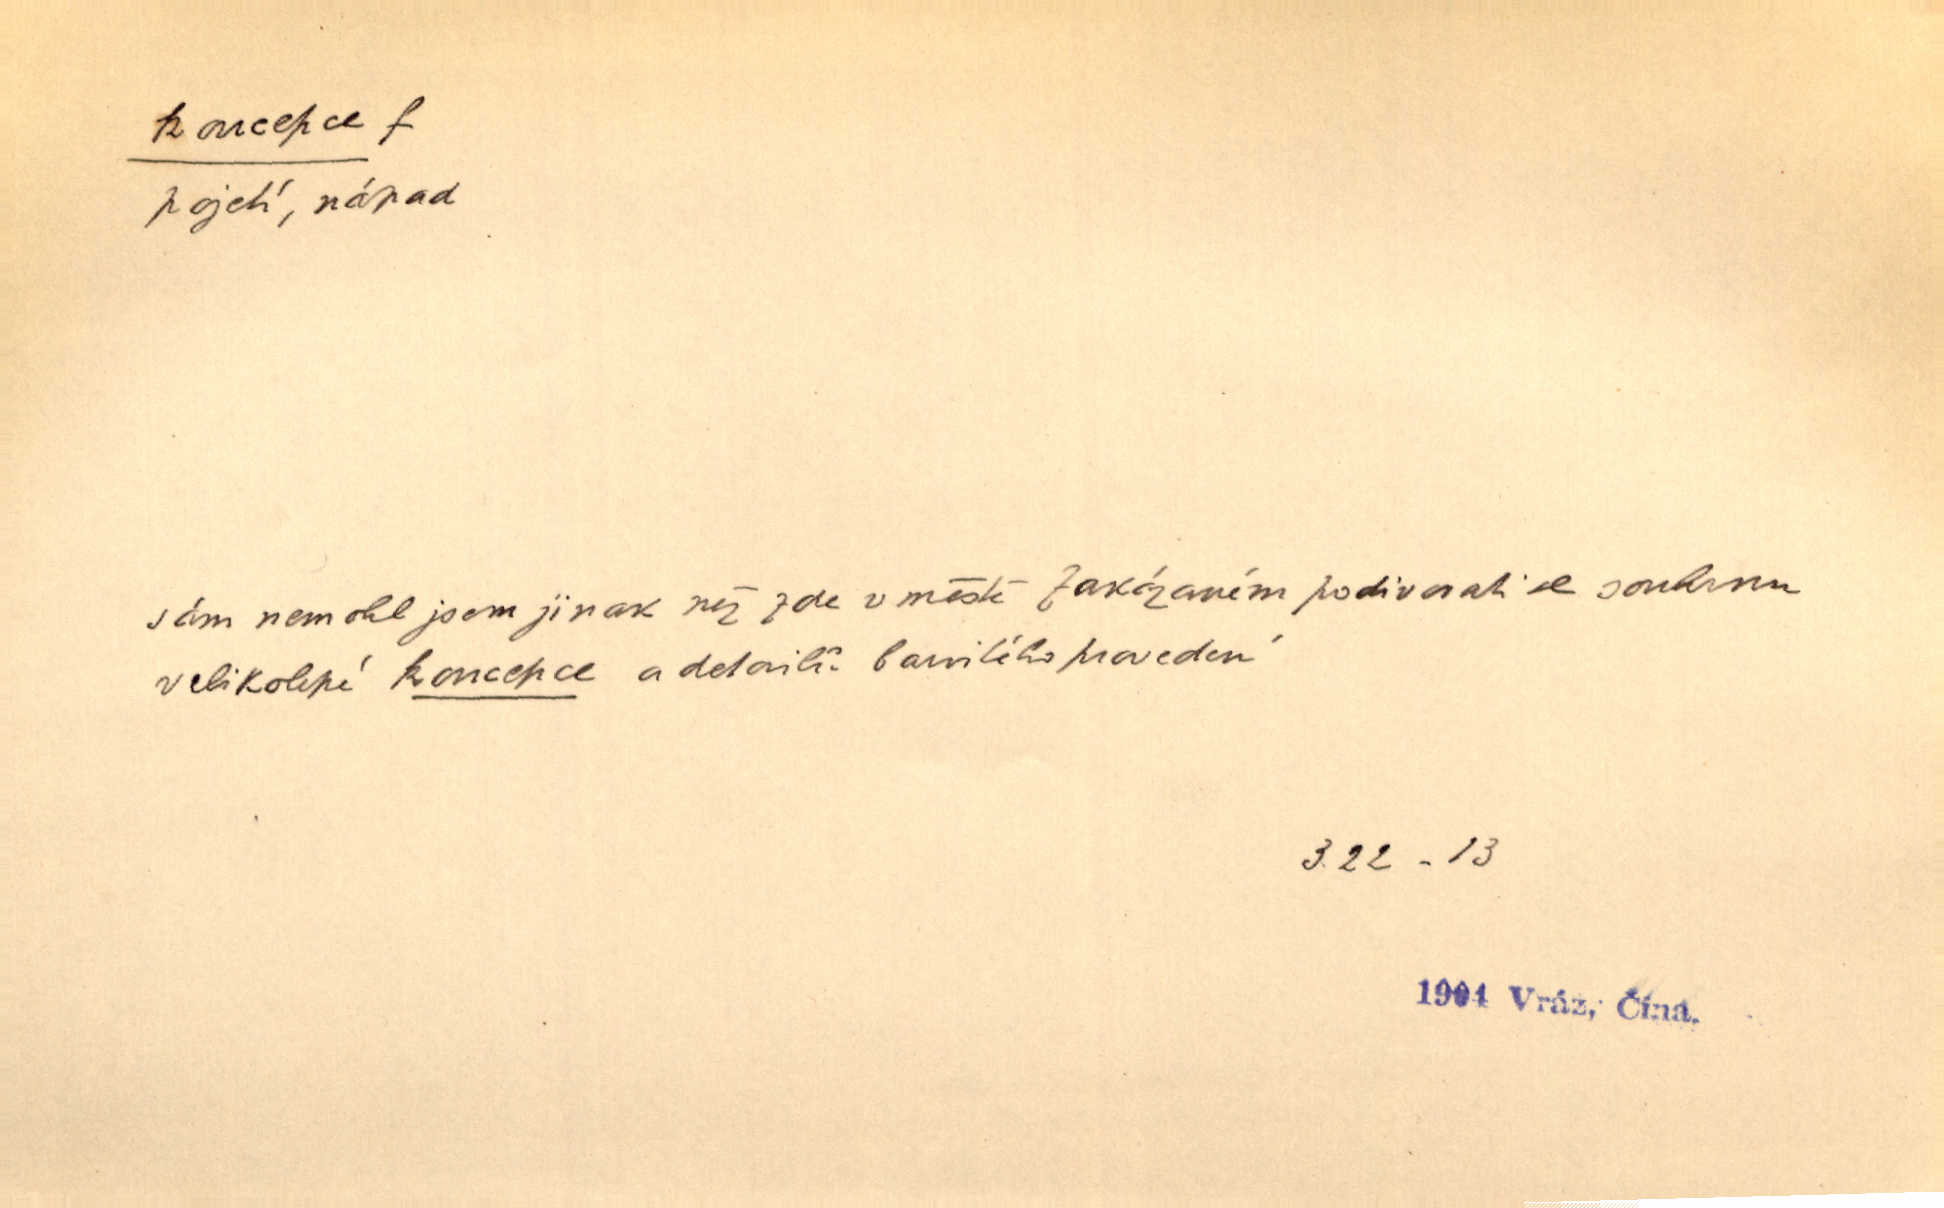 koncepce f
pojetí, nápad
sám nemohl jsem jinak než zde v městě Zakázaném podivovati se souhrnu
velikolepé koncepce a detailů barvitého provedení
3.22 - 13
1904 Vráz, Čína.